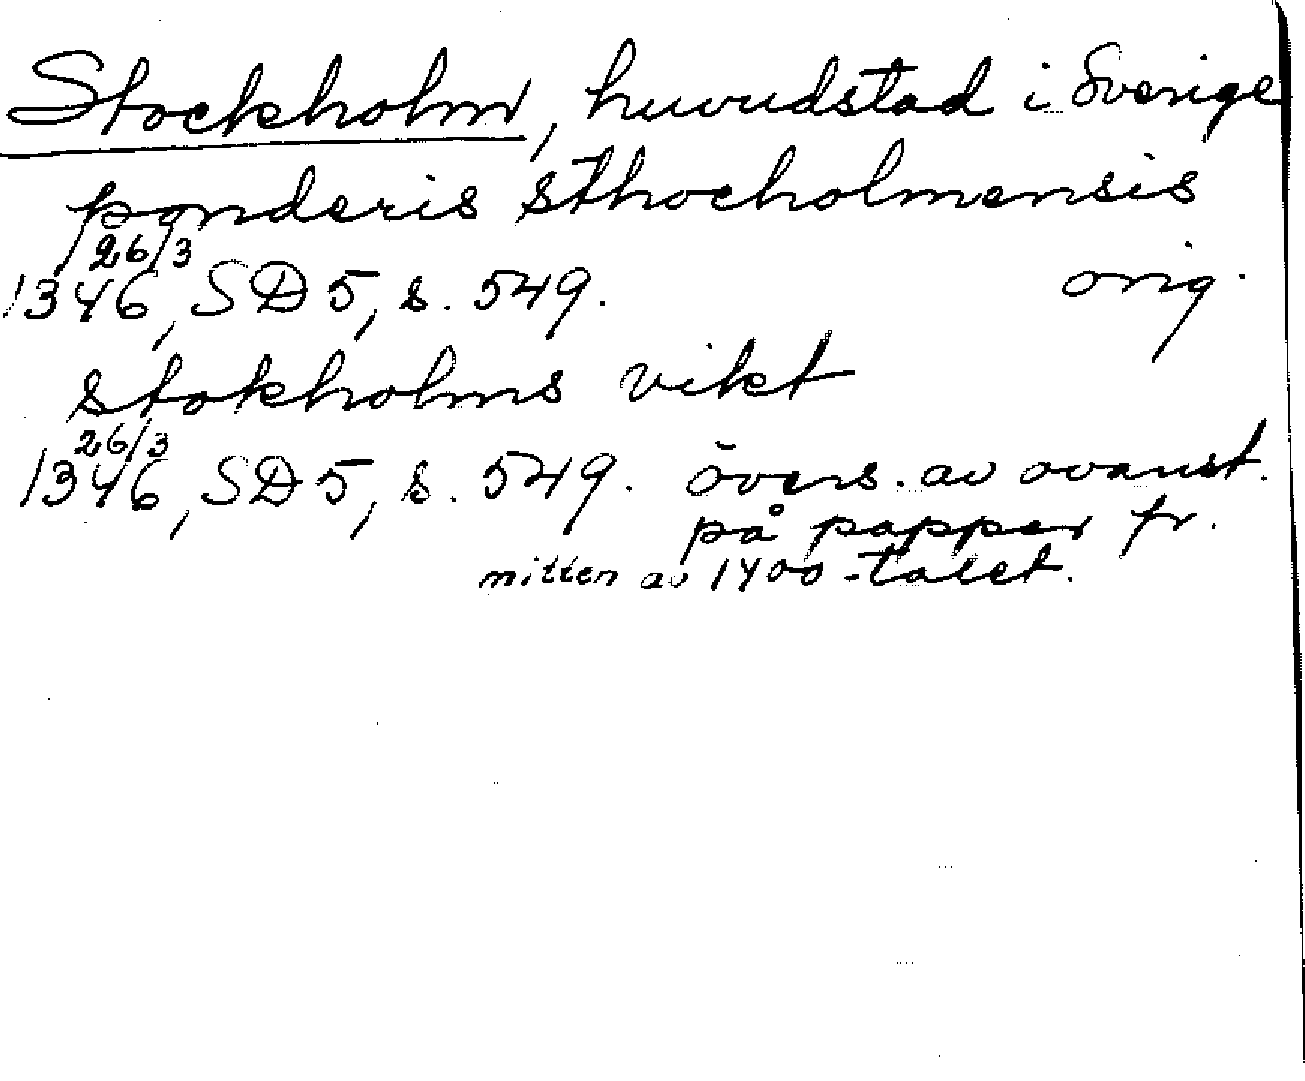 Stockholm, huvudstad i Sverige
ponderis sthocholmensis
26/3
1346, SD 5, s. 549. orig.
stokholms vikt
26/3
1346, SD 5, s. 549. övers. av ovanst.
på papper fr.
mitten av 1400-talet.